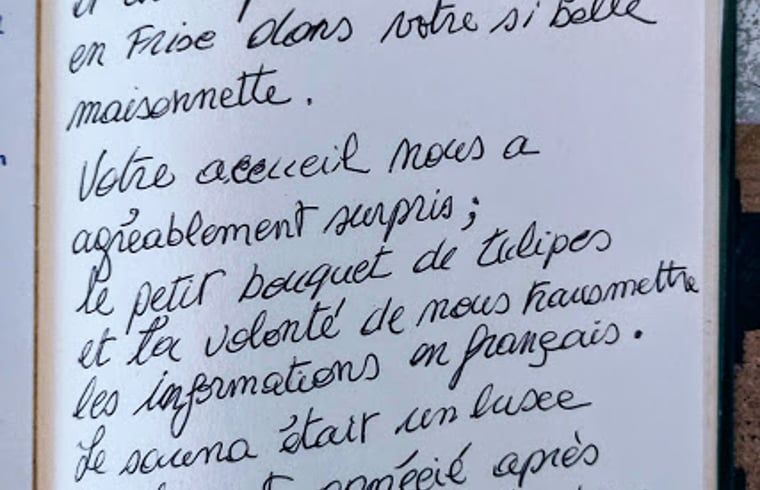 en Frise dans votre si belle
maisonnette.
Votre accueil nous a
agréablement surpris ;
le petit bouquet de tulipes
et la volonté de nous transmettre
les informations en français.
Le sauna était un lusee
après